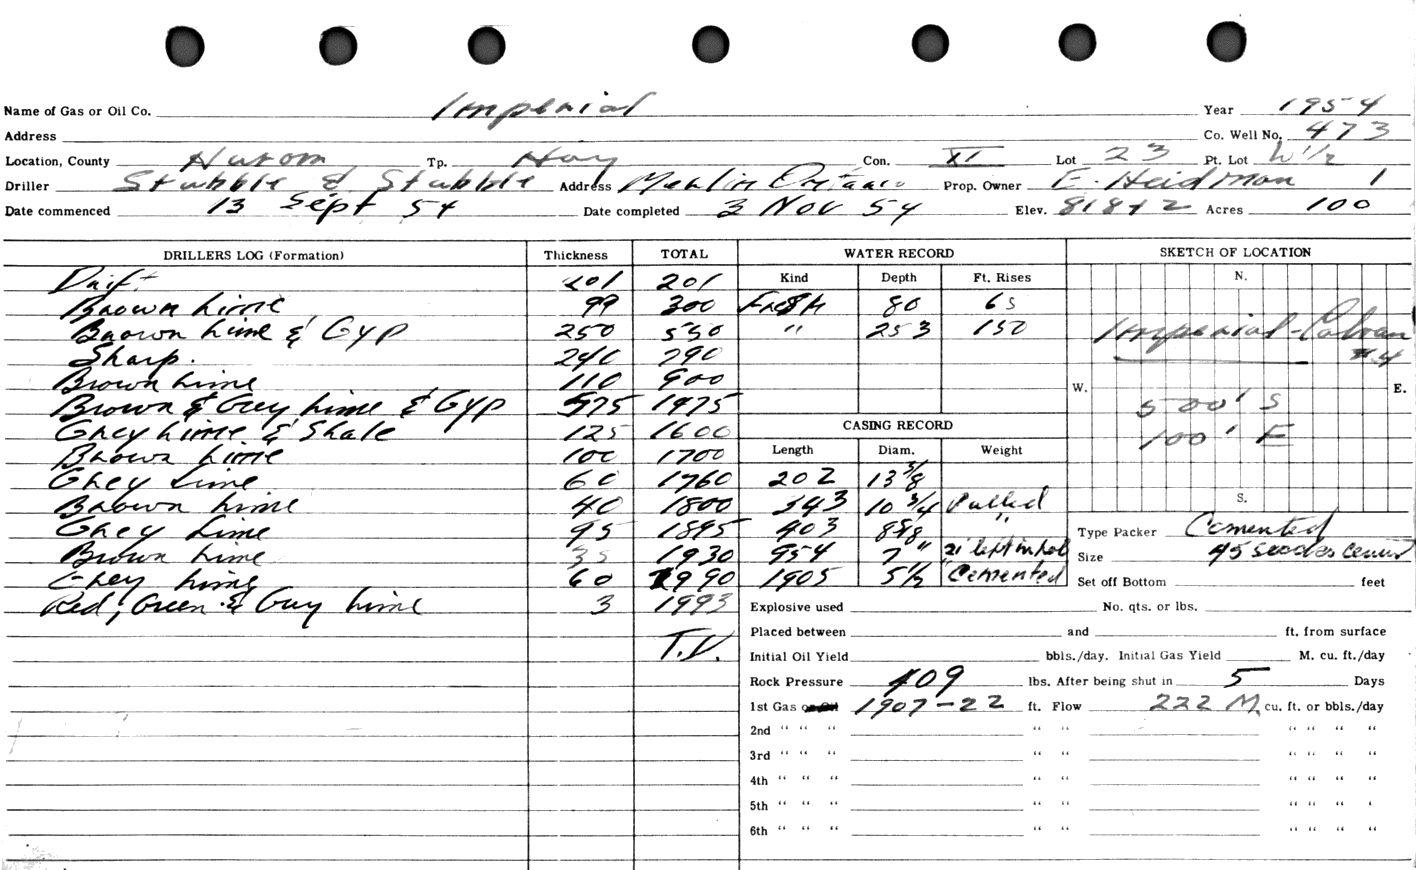 Name of Gas or Oil Co. Imperial Year 1954
Address Co. Well No. 473
Location, County Huron Tp. Hay Con. XI Lot 23 Pt. Lot W 1/2
Driller Stubble & Stubble Address Ontario Prop. Owner E. Heidman 1
Date commenced 13 Sept 54 Date completed 3 Nov 54 Elev. 818+2 Acres 100
DRILLERS LOG (Formation) Thickness TOTAL WATER RECORD SKETCH OF LOCATION
Kind Depth Ft. Rises N.
Drift 201 201
Brown Lime 99 300 Fresh 80 65
Brown Lime & Gyp 250 550 " 253 150 Imperial-Calvan
Sharp. 240 790 #4
Brown Lime 110 900 W. E.
Brown & Grey Lime & Gyp 575 1475 500' S
Grey Lime & Shale 125 1600 CASING RECORD 100' E
Brown Lime 100 1700 Length Diam. Weight
Grey Lime 60 1760 202 13 3/8
Brown Lime 40 1800 343 10 3/4 Pulled S.
Grey Lime 95 1895 403 8 5/8 " Type Packer Cemented
Brown Lime 35 1930 954 7" 21' left in hole Size 45 Cement
Grey Lime 60 1990 1905 5 1/2 Cemented Set off Bottom feet
Red, Green & Grey Lime 3 1993 Explosive used No. qts. or lbs.
T.D. Placed between and ft. from surface
Initial Oil Yield bbls./day. Initial Gas Yield M. cu. ft./day
Rock Pressure 409 lbs. After being shut in 5 Days
1st Gas or Oil 1907-22 ft. Flow 222 M. cu. ft. or bbls./day
2nd " " " " " " " " "
3rd " " " " " " " " "
4th " " " " " " " " "
5th " " " " " " " " '
6th " " " " " " " " "